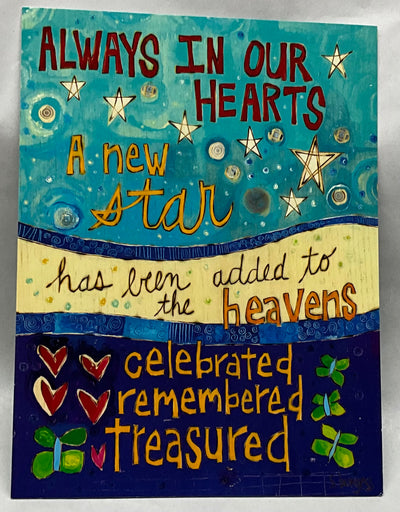 ALWAYS IN OUR
HEARTS
A new
star
has been added to
the heavens
celebrated
remembered
treasured